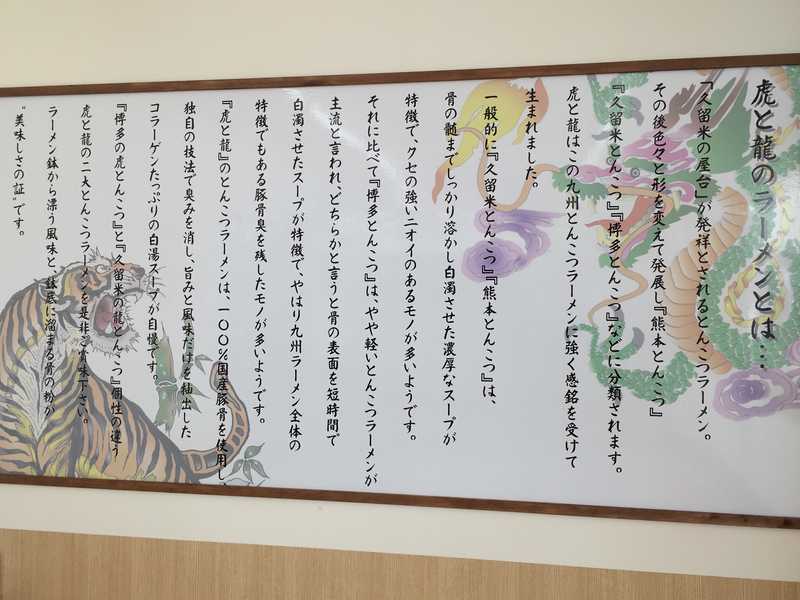 虎と龍のラーメンとは…
「久留米の屋台」が発祥とされるとんこつラーメン。
その後色々と形を変えて発展し『熊本とんこつ』
『久留米とんこつ』『博多とんこつ』などに分類されます。
虎と龍はこの九州とんこつラーメンに強く感銘を受けて
生まれました。
一般的に『久留米とんこつ』『熊本とんこつ』は、
骨の髄までしっかり溶かし白濁させた濃厚なスープが
特徴で、クセの強いニオイのあるモノが多いようです。
それに比べて『博多とんこつ』は、やや軽いとんこつラーメンが
主流と言われ、どちらかと言うと骨の表面を短時間で
白濁させたスープが特徴で、やはり九州ラーメン全体の
特徴でもある豚骨臭を残したモノが多いようです。
『虎と龍』のとんこつラーメンは、一〇〇％国産豚骨を使用し、
独自の技法で臭みを消し、旨みと風味だけを抽出した
コラーゲンたっぷりの白湯スープが自慢です。
『博多の虎とんこつ』と『久留米の龍とんこつ』個性の違う
虎と龍の二大とんこつラーメンを是非ご賞味下さい。
ラーメン鉢から漂う風味と、鉢底に溜まる骨の粉が
“美味しさの証”です。